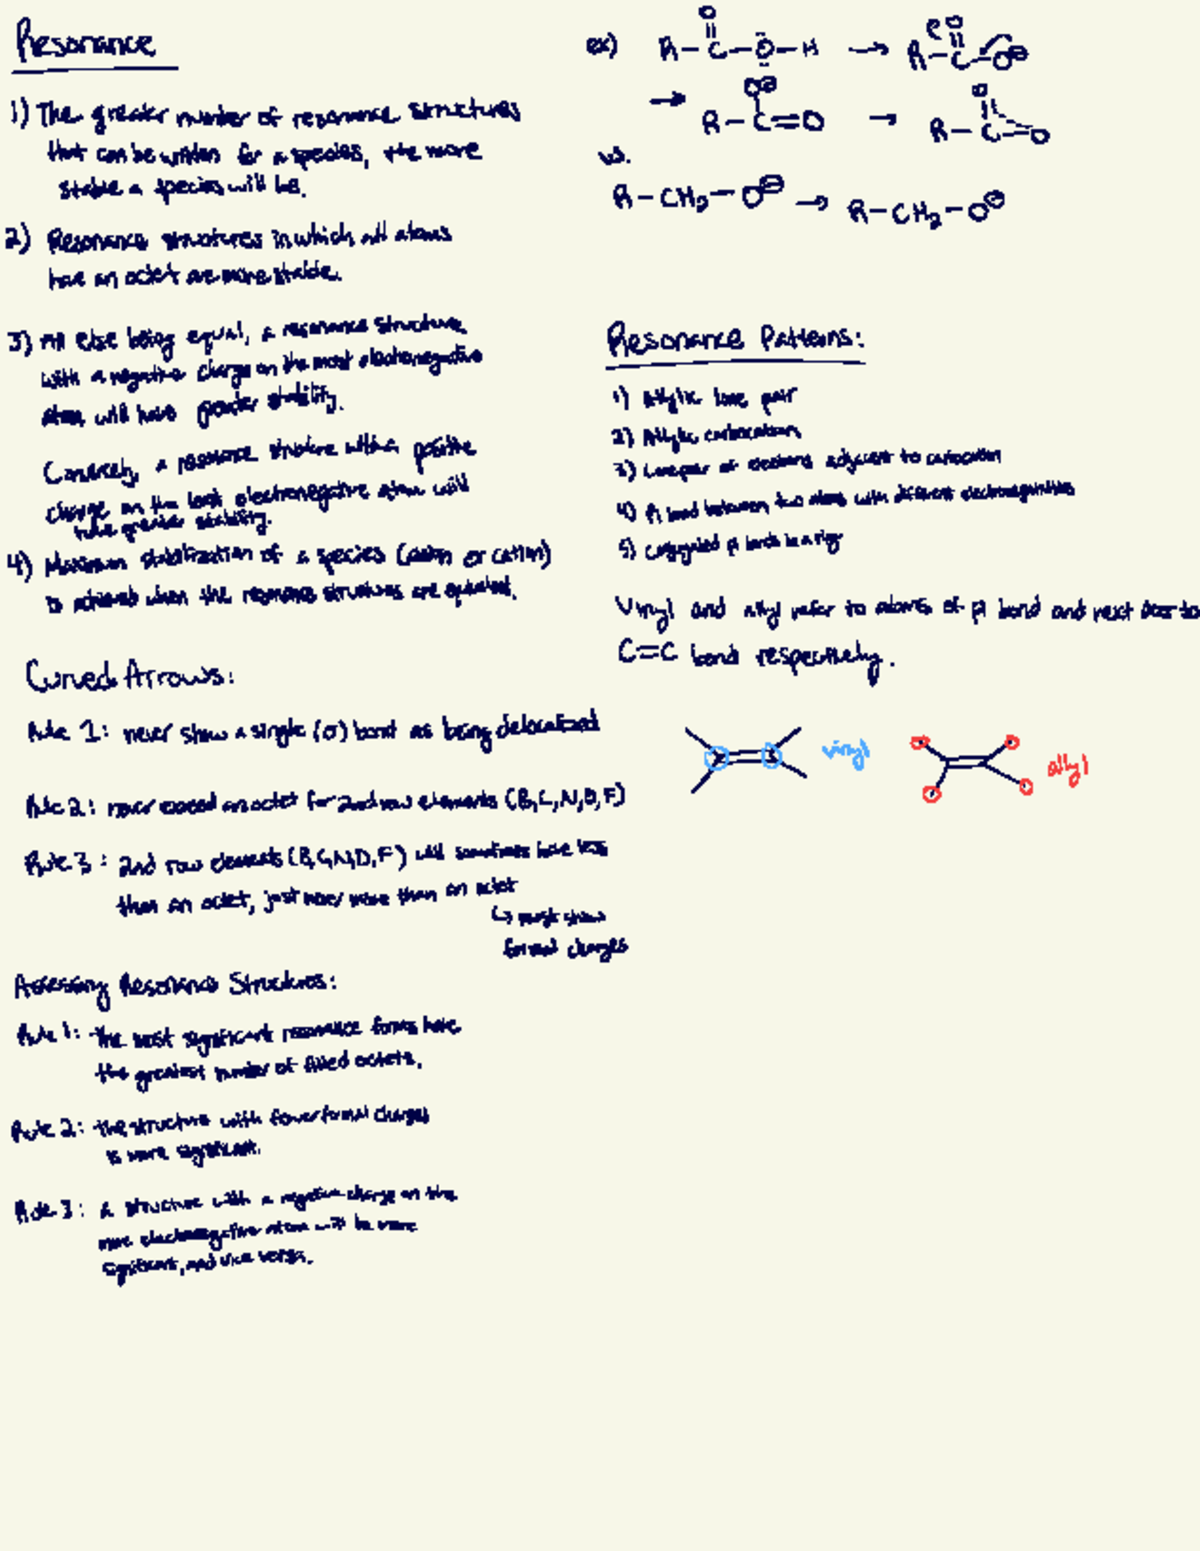 Resonance
1) The greater number of resonance structures
that can be written for a species, the more
stable a species will be.
2) Resonance structures in which all atoms
have an octet are more stable.
3) All else being equal, a resonance structure
with a negative charge on the most electronegative
atom will have greater stability.
Conversely, a resonance structure with a positive
charge on the least electronegative atom will
have greater stability.
4) Maximum stabilization of a species (anion or cation)
is achieved when the resonance structures are equivalent.
Curved Arrows:
Rule 1: never show a single (σ) bond as being delocalized
Rule 2: never exceed an octet for 2nd row elements (B,C,N,O,F)
Rule 3: 2nd row elements (B,C,N,O,F) will sometimes have less
than an octet, just never more than an octet
↳ must show
formal charges
Assessing Resonance Structures:
Rule 1: the most significant resonance forms have
the greatest number of filled octets.
Rule 2: the structure with fewer formal charges
is more significant.
Rule 3: a structure with a negative charge on the
more electronegative atom will be more
significant, and vice versa.
ex) R-C-O-H → R-C-O⊖
O O
→ R-C=O → R-C=O
O⊖ O
vs.
R-CH2-O⊖ → R-CH2-O⊖
Resonance Patterns:
1) Allylic lone pair
2) Allylic carbocation
3) Lone pair of electrons adjacent to carbocation
4) Pi bond between two atoms with different electronegativities
5) Conjugated pi bonds in a ring
Vinyl and allyl refer to atoms of pi bond and next door to
C=C bond respectively.
vinyl
allyl